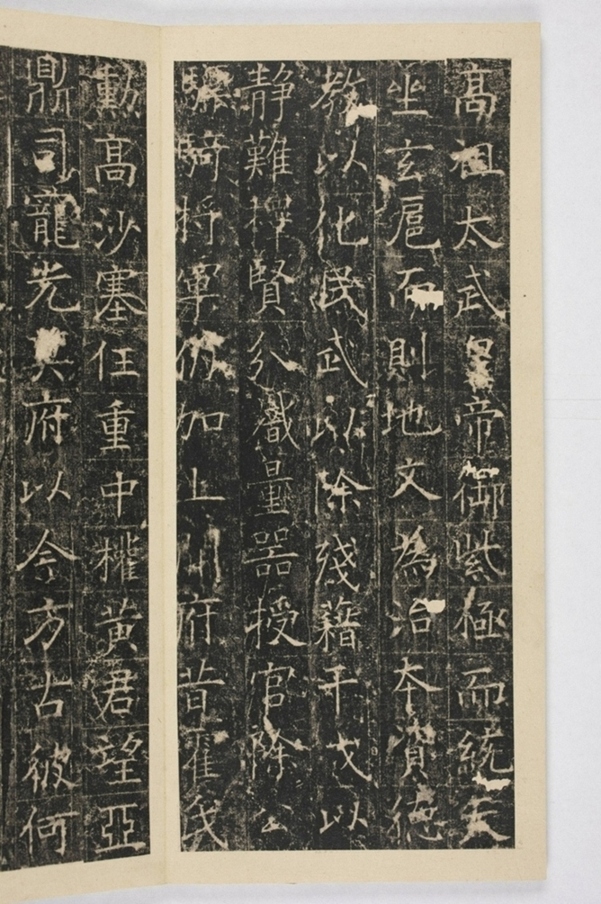 高祖太武皇帝御紫極而統天
坐玄扈而則地文為治本資德
教以化民武以除殘藉干戈以
静難擇賢分職量器授官除公
驃騎将軍仍加上開府昔霍氏
勳高沙塞任重中權黃君望亞
鼎司寵先府以今方古彼何